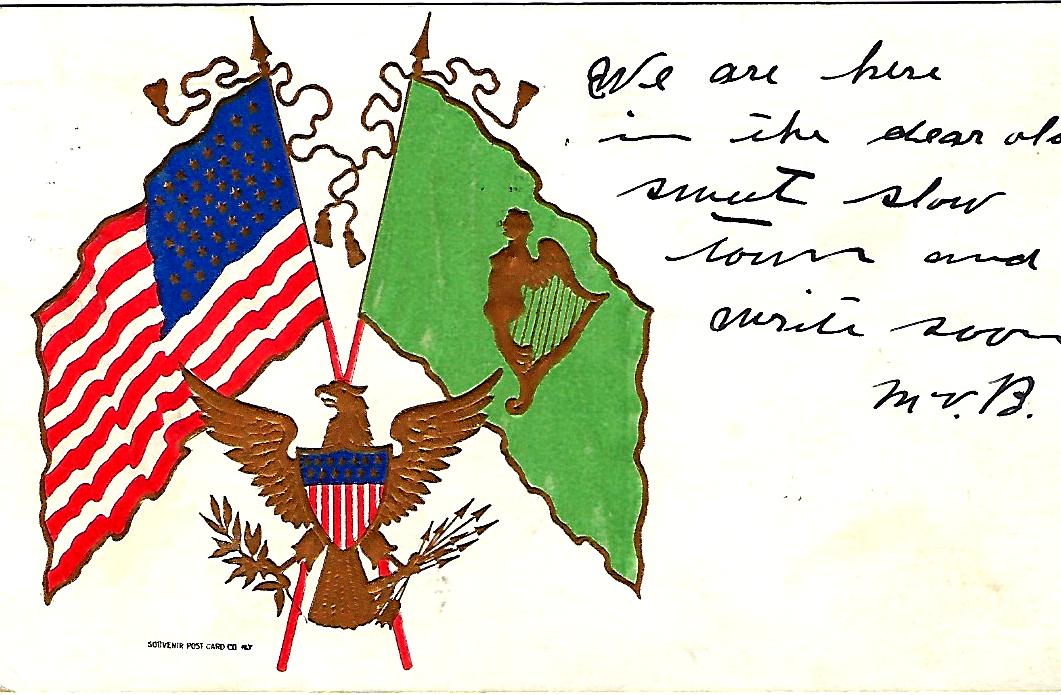 We are here
in the dear old
sweet slow
town and
write soon
M.V.B.
SOUVENIR POST CARD CO NY